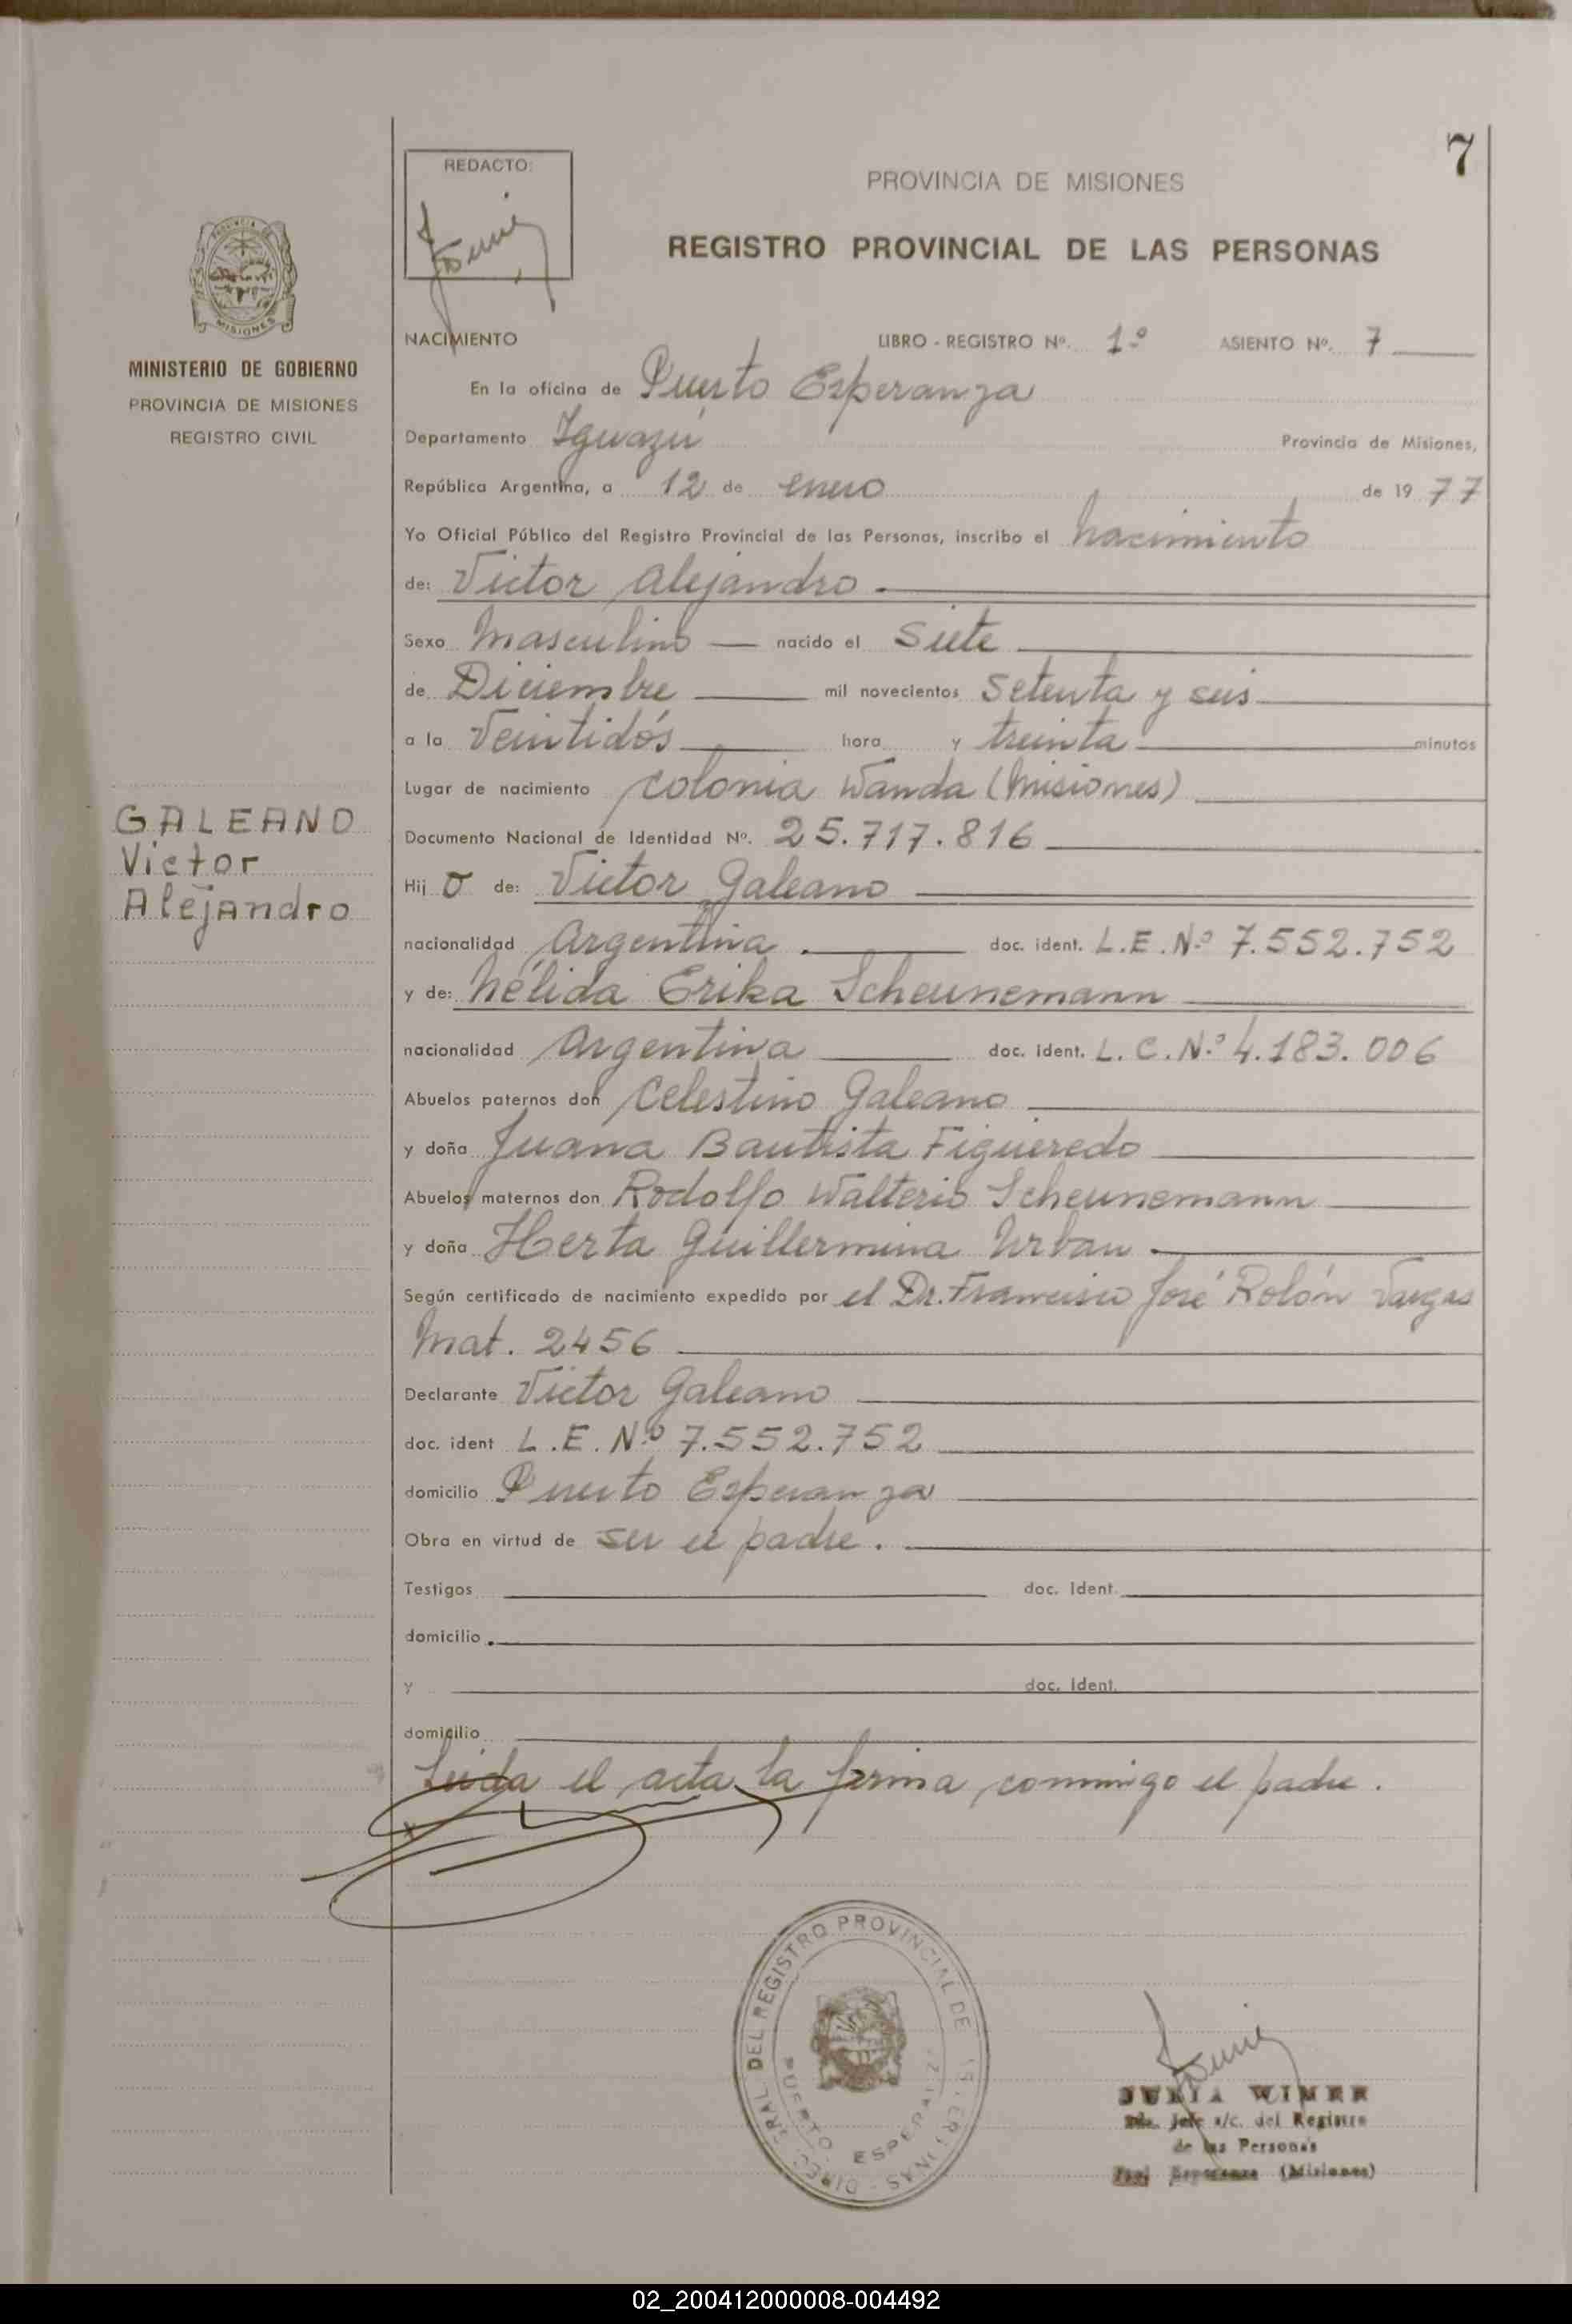 7
REDACTO:
PROVINCIA DE MISIONES
REGISTRO PROVINCIAL DE LAS PERSONAS
MISIONES
MINISTERIO DE GOBIERNO
PROVINCIA DE MISIONES
REGISTRO CIVIL
GALEANO
Victor
Alejandro
NACIMIENTO LIBRO - REGISTRO Nº. 1º ASIENTO Nº. 7
En la oficina de Puerto Esperanza
Departamento Iguazú Provincia de Misiones,
República Argentina, a 12 de enero de 19 77
Yo Oficial Público del Registro Provincial de las Personas, inscribo el nacimiento
de: Victor Alejandro
Sexo Masculino nacido el Siete
de Diciembre mil novecientos Setenta y seis
a la Veintidós hora y treinta minutos
Lugar de nacimiento Colonia Wanda (Misiones)
Documento Nacional de Identidad Nº. 25.717.816
Hij o de: Victor Galeano
nacionalidad Argentina doc. ident. L.E.Nº 7.552.752
y de: Nélida Erika Scheunemann
nacionalidad Argentina doc. ident. L.C.Nº 4.183.006
Abuelos paternos don Celestino Galeano
y doña Juana Bautista Figueredo
Abuelos maternos don Rodolfo Walterio Scheunemann
y doña Herta Guillermina Urban
Según certificado de nacimiento expedido por el Dr. Francisco José Rolón Vargas
Mat. 2456
Declarante Victor Galeano
doc. ident L.E.Nº 7.552.752
domicilio Puerto Esperanza
Obra en virtud de ser el padre.
Testigos doc. ident.
domicilio
y doc. ident.
domicilio
Leida el acta la firma conmigo el padre.
x
DIREC. GRAL. DEL REGISTRO PROVINCIAL DE
PUERTO ESPERANZA
JULIA WIMER
Jefe a/c. del Registro
de las Personas
Esperanza (Misiones)
02_200412000008-004492